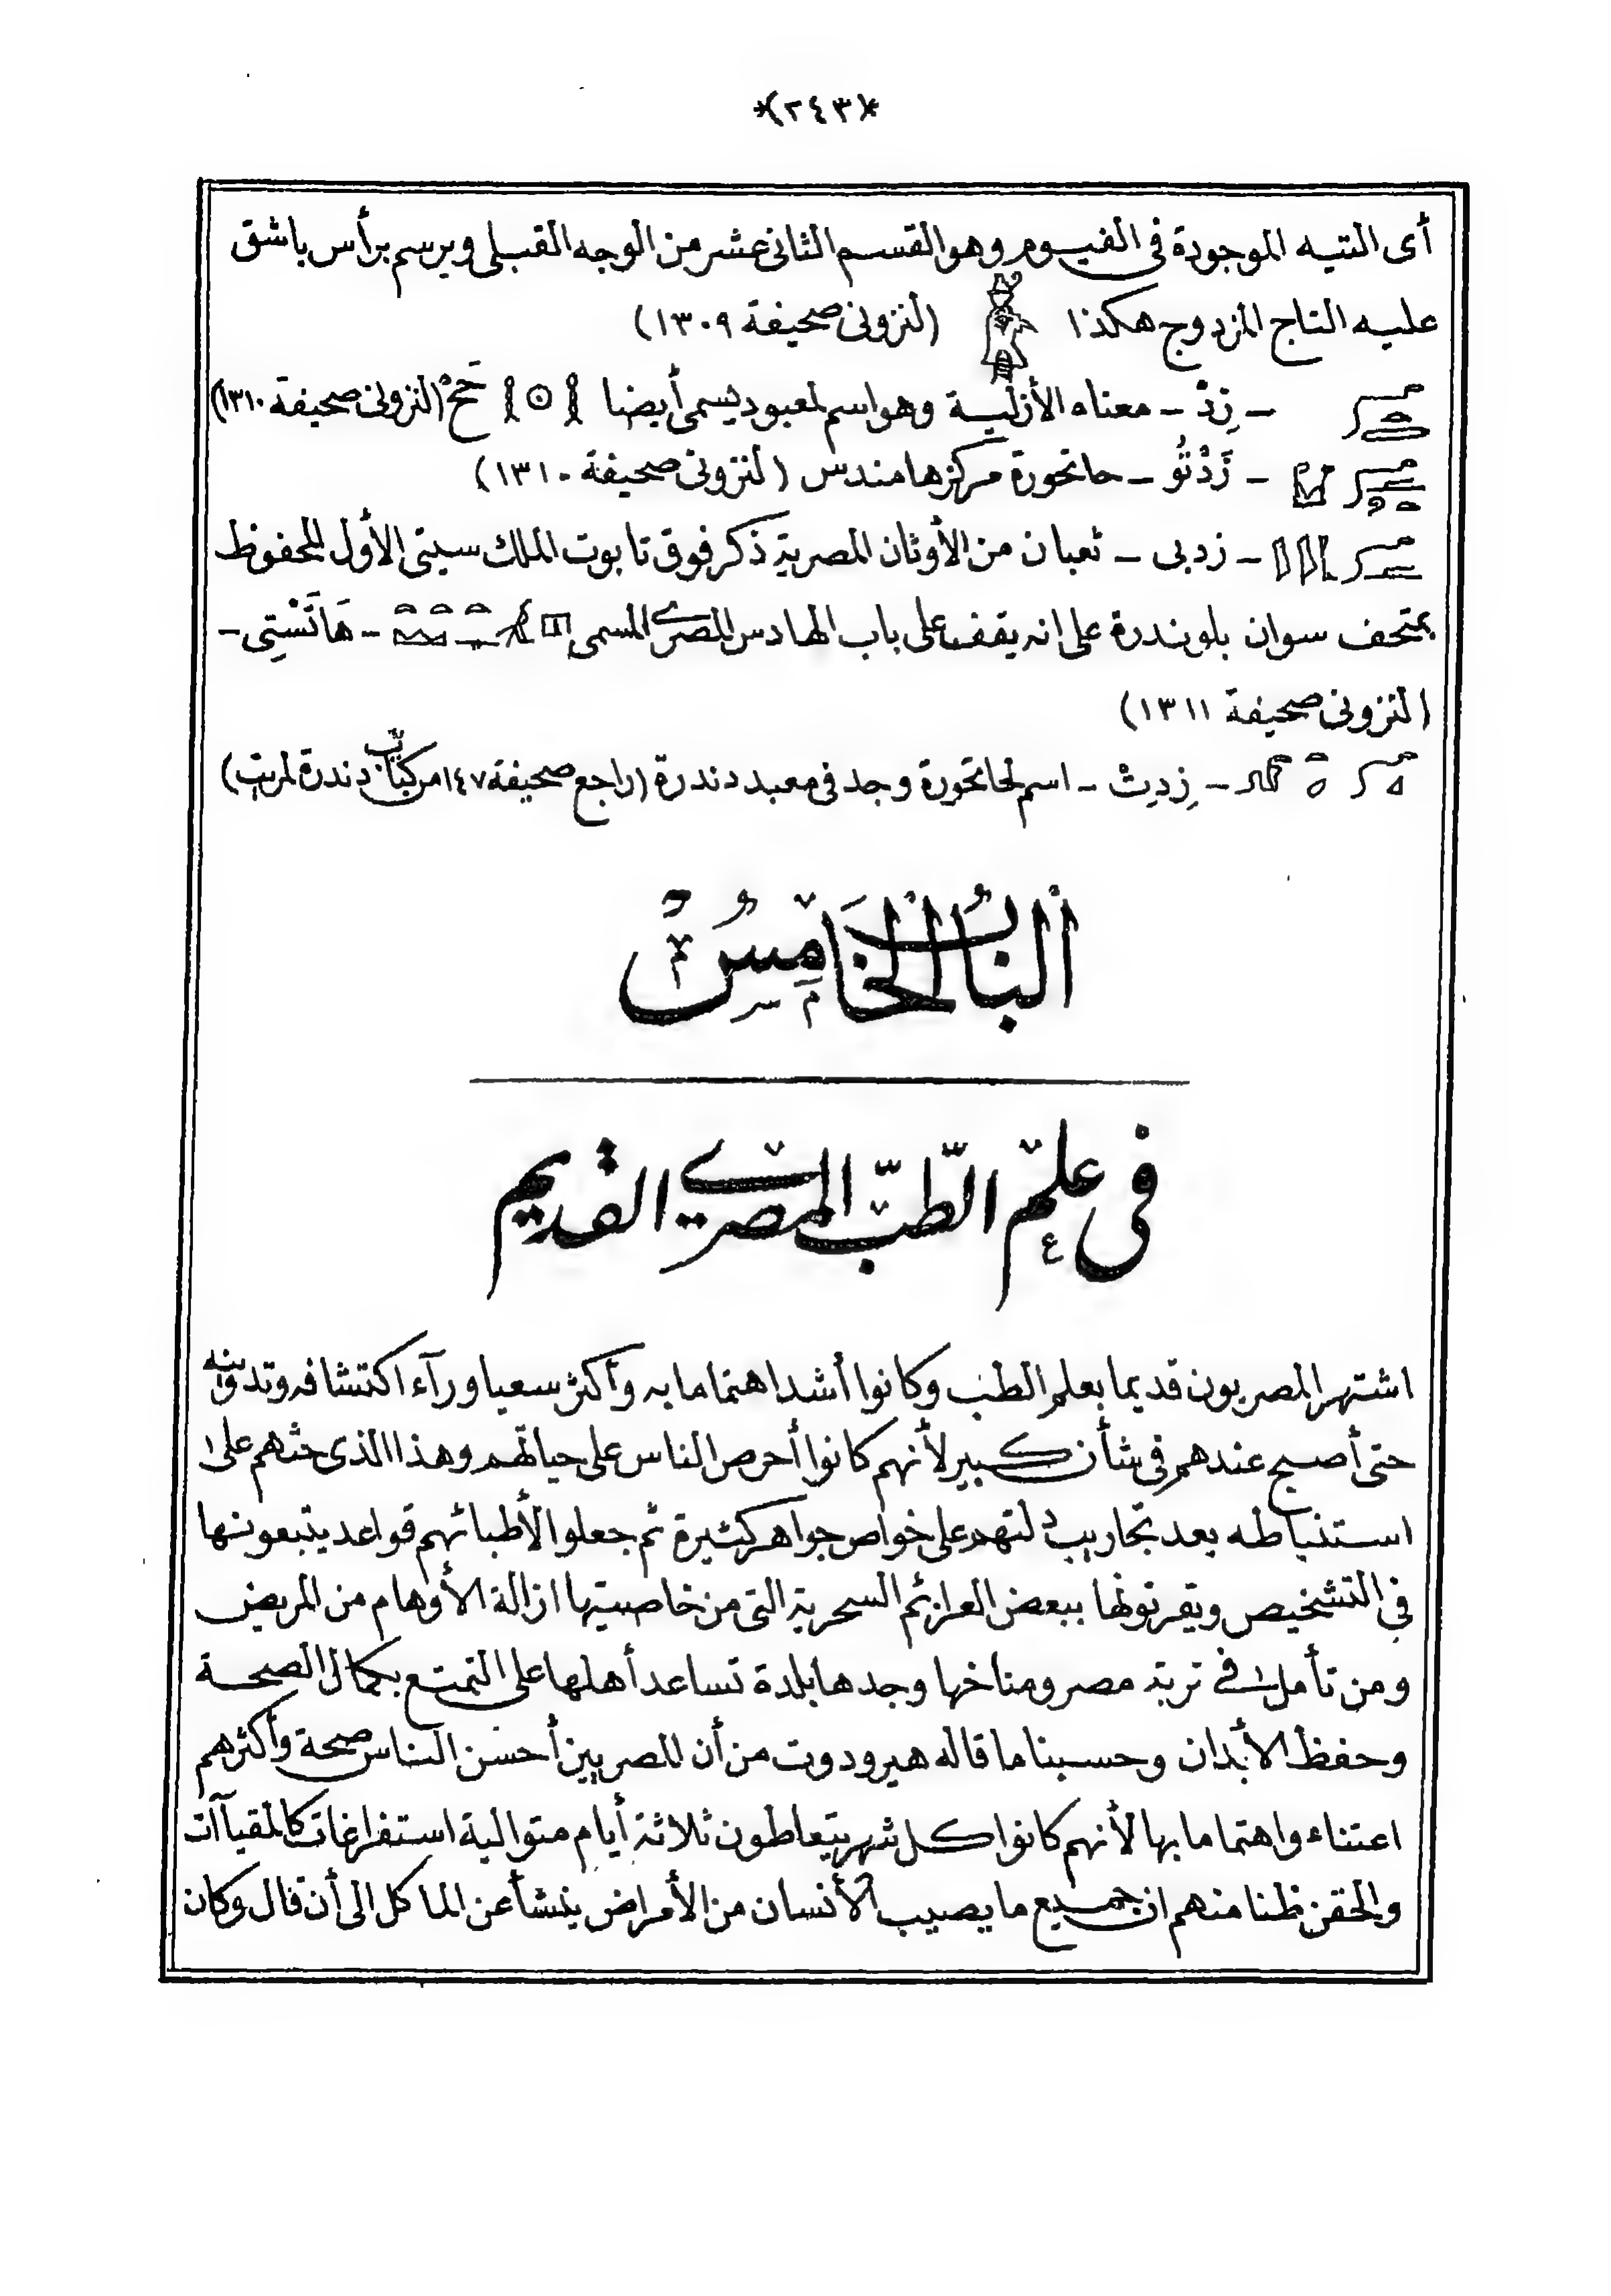 *(٢٤٣)*
أى التيه الموجودة فى الفيوم وهو القسم الثانى عشر من الوجه القبلى ويرسم برأس باشق
عليه التاج المزدوج هكذا (لنزونى صحيفة ١٣٠٩)
ـ زِدْ ـ معناه الأزلية وهو اسم لمعبود يسمى أيضا حَحْ (لنزونى صحيفة ١٣١٠)
ـ زَدْتُو ـ حاتحورة مركزها مندس (لنزونى صحيفة ١٣١٠)
ـ زدبى ـ ثعبان من الأوثان المصرية ذكر فوق تابوت الملك سيتى الأول المحفوظ
بمتحف سوان بلوندرة على انه يقف على باب الهادس المصرى المسمى ـ هَاتَسْتِى ـ
(لنزونى صحيفة ١٣١١)
ـ زِدِتْ ـ اسم لحاتحورة وجد فى معبد دندرة (راجع صحيفة ١٤٧ من كتاب دندرة لمريت)
اَلْبَابُ الْخَامِسُ
فى علم الطّبّ المصرى القديم
اشتهر المصريون قديما بعلم الطب وكانوا أشد اهتماما به وأكثر سعيا ورآء اكتشافه وتدوينه
حتى أصبح عندهم فى شأن كبير لأنهم كانوا أحرص الناس على حياتهم وهذا الذى حثهم على
استنباطه بعد تجاريب دلتهم على خواص جواهر كثيرة ثم جعلوا لأطبائهم قواعد يتبعونها
فى التشخيص ويقرنونها ببعض العزائم السحرية التى من خاصيتها ازالة الأوهام من المريض
ومن تأمل فى تربة مصر ومناخها وجدها بلدة تساعد أهلها على التمتع بكمال الصحة
وحفظ الأبدان وحسبنا ما قاله هيرودوت من أن المصريين أحسن الناس صحة وأكثرهم
اعتناء واهتماما بها لأنهم كانوا كل شهر يتعاطون ثلاثة أيام متوالية استفراغات كالمقيآت
والحقن ظنا منهم ان جميع ما يصيب الأنسان من الأمراض ينشأ عن المأكل الى أن قال وكان